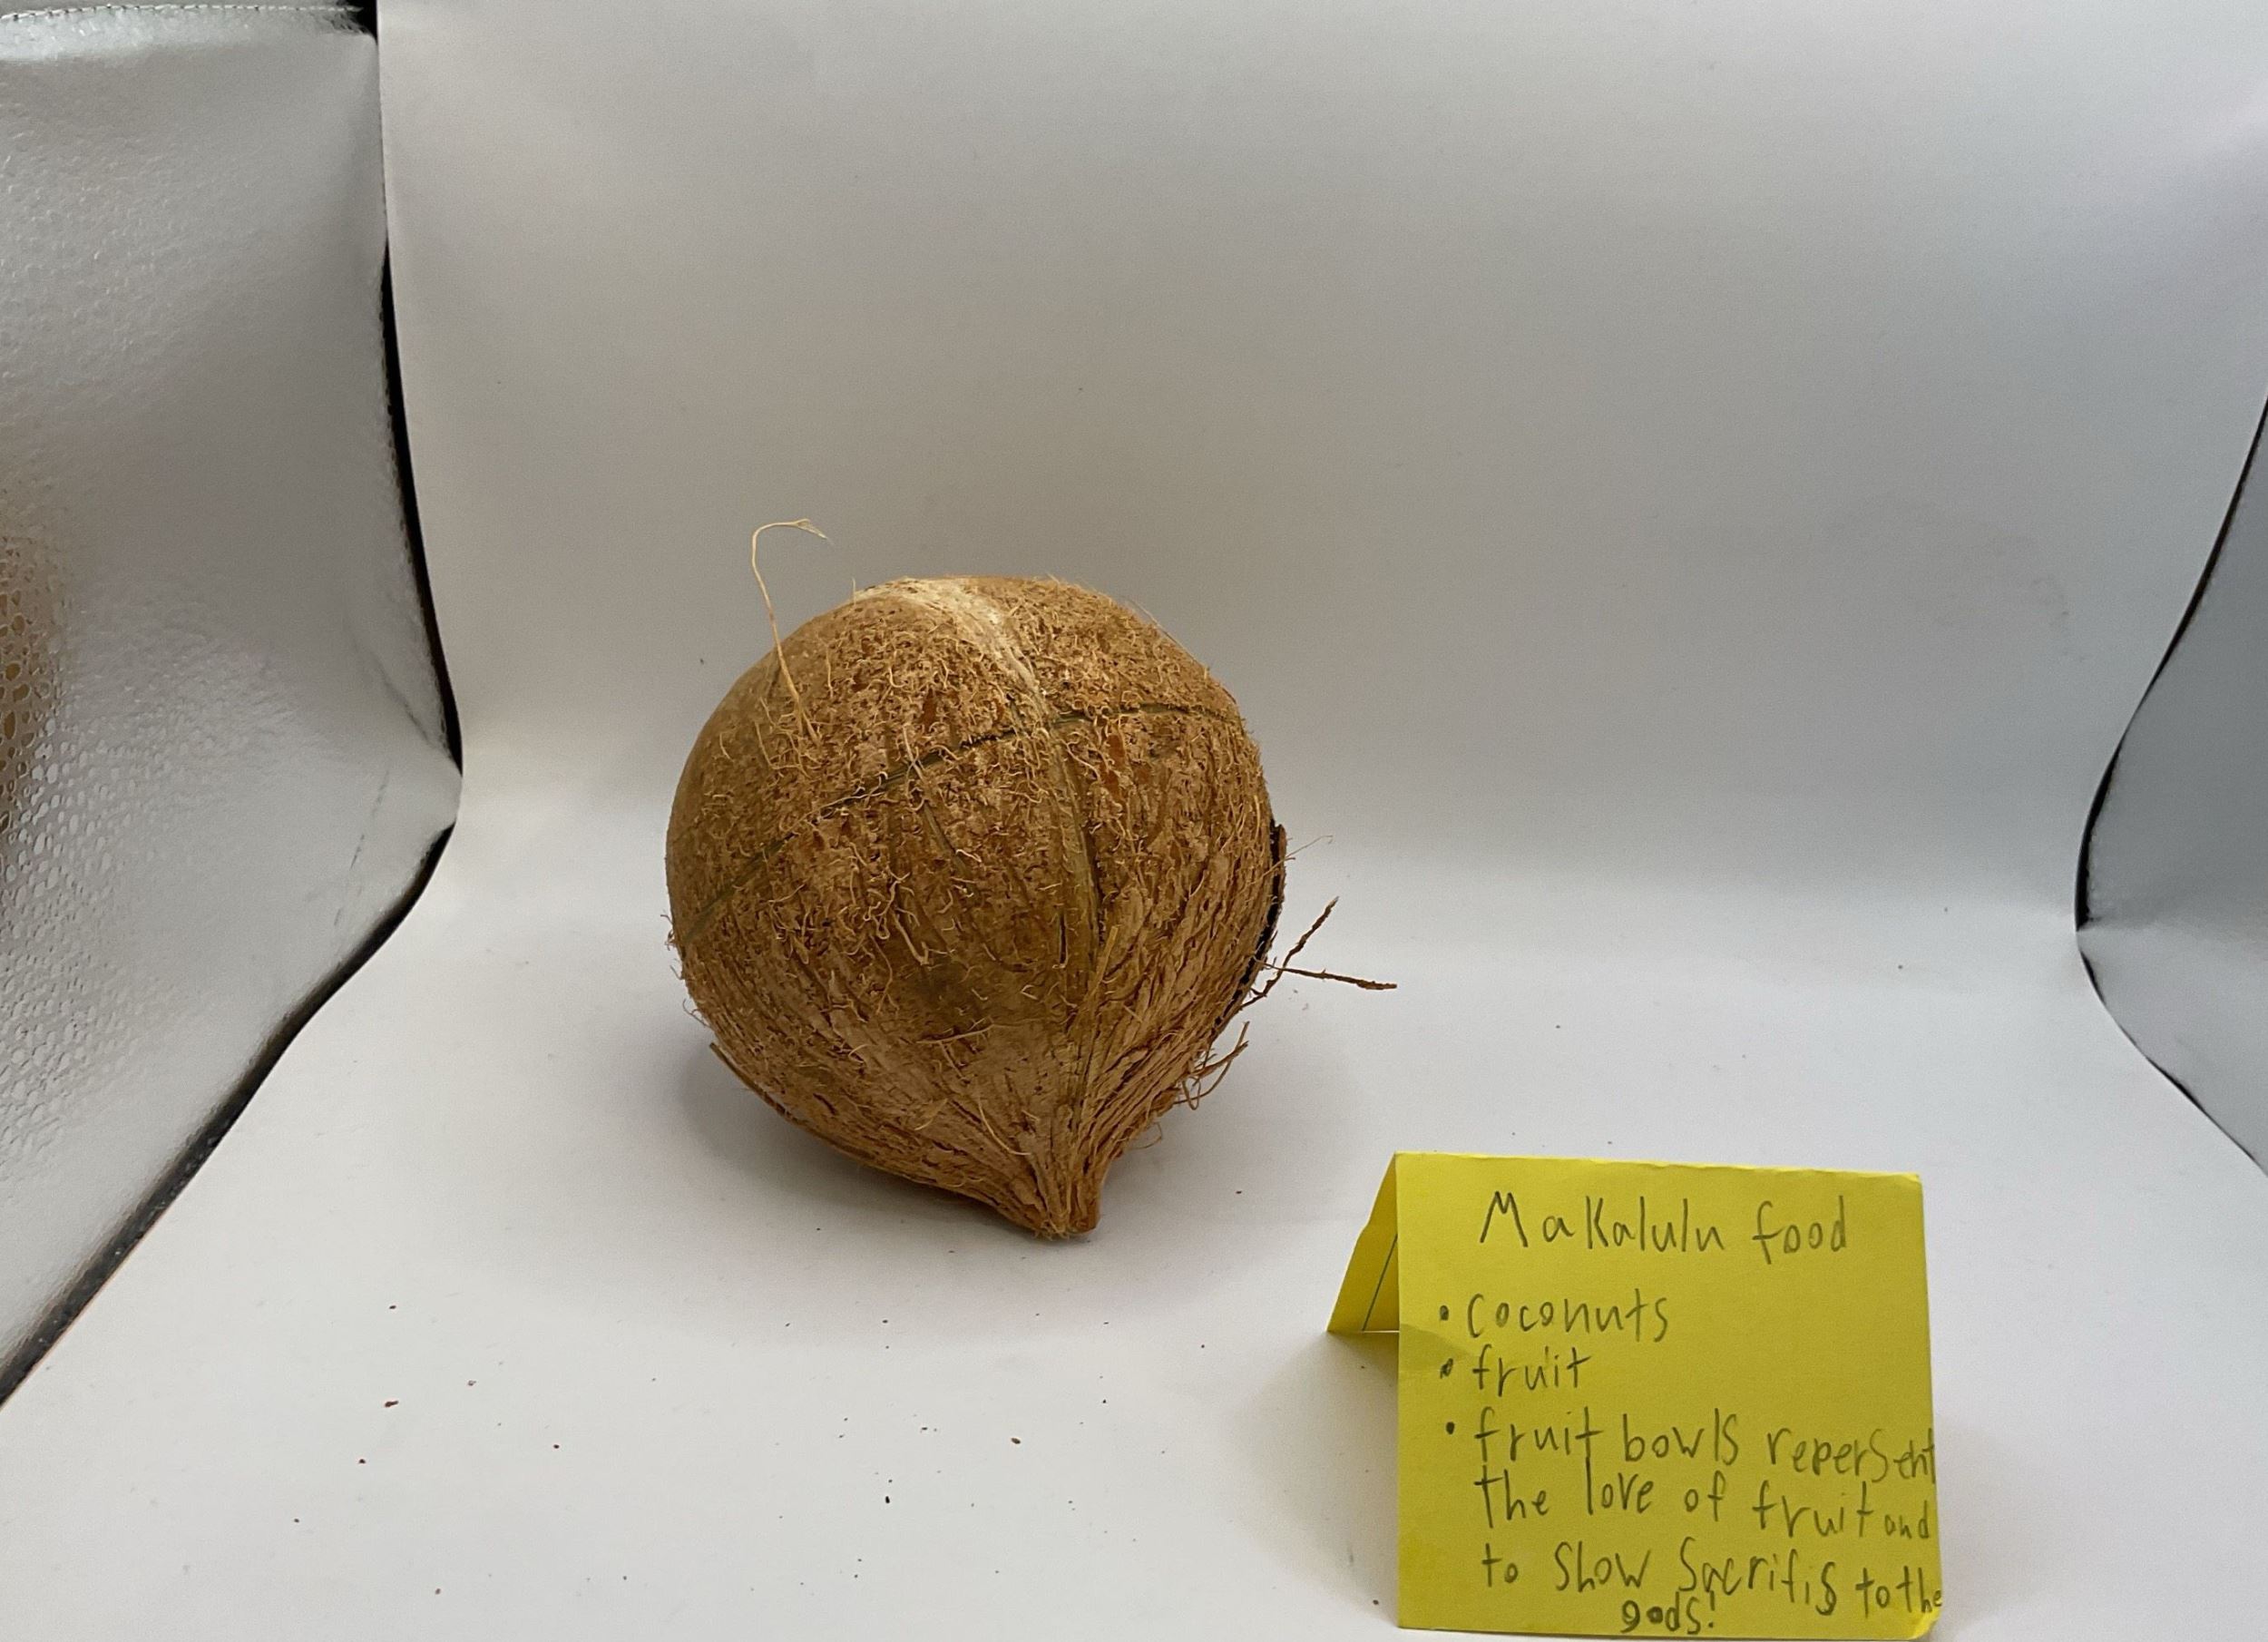 Makalulu food
• coconuts
• fruit
• fruit bowls repersent
the love of fruit and
to show Sacrifis to the
gods!